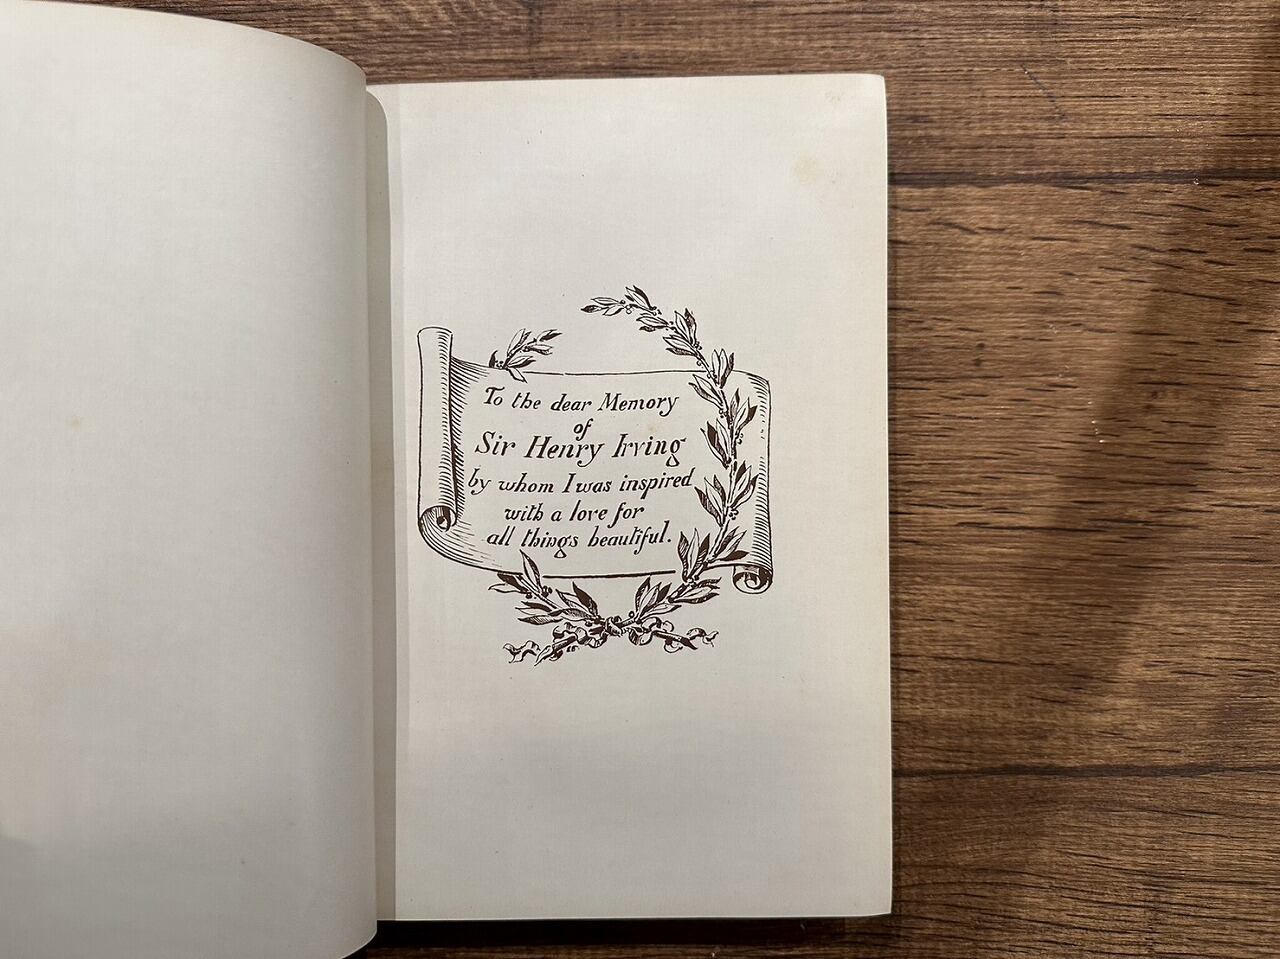 To the dear Memory
of
Sir Henry Irving
by whom I was inspired
with a love for
all things beautiful.